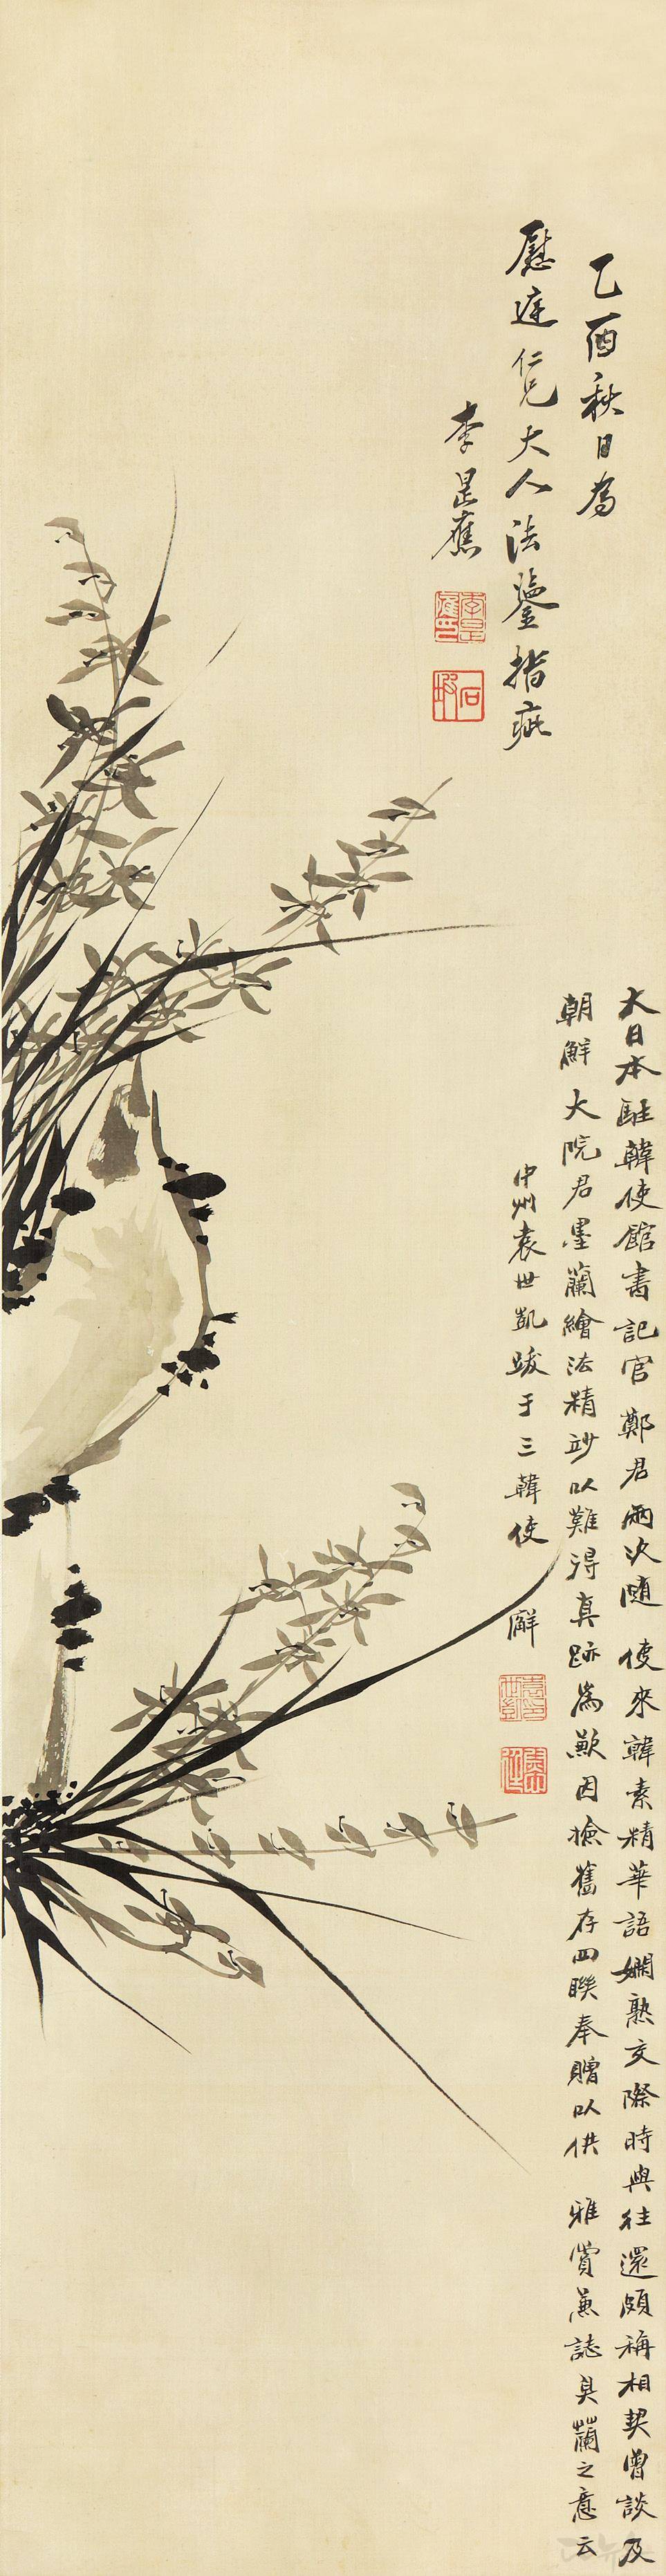 乙酉秋日為
慰廷仁兄大人法鑒指疵
李昰應
李昰應印
石坡
大日本駐韓使館書記官鄭君兩次隨使來韓素精華語嫻熟交際時與往還頗稱相契曾談及
朝鮮大院君墨蘭繪法精妙以難得真跡為歉因撿舊存四聯奉贈以供雅賞兼誌臭蘭之意云
中州袁世凱跋于三韓使廨